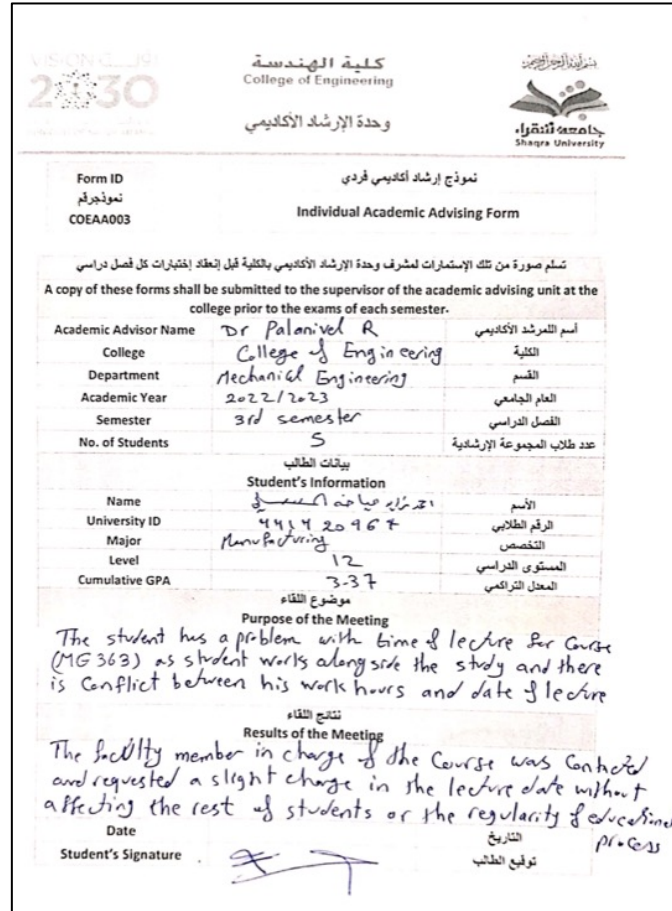 2030
كلية الهندسة
College of Engineering
وحدة الإرشاد الأكاديمي
جامعة شقراء
Shaqra University
Form ID
نموذج إرشاد أكاديمي فردي
نموذجرقم
COEAA003
Individual Academic Advising Form
تسلم صورة من تلك الإستمارات لمشرف وحدة الإرشاد الأكاديمي بالكلية قبل إنعقاد إختبارات كل فصل دراسي
A copy of these forms shall be submitted to the supervisor of the academic advising unit at the
college prior to the exams of each semester.
Academic Advisor Name Dr Palanivel R أسم اللمرشد الأكاديمي
College College of Engineering الكلية
Department Mechanical Engineering القسم
Academic Year 2022/2023 العام الجامعي
Semester 3rd semester الفصل الدراسي
No. of Students 5 عدد طلاب المجموعة الإرشادية
بيانات الطالب
Student's Information
Name الأسم
University ID الرقم الطلابي
Major Manufacturing التخصص
Level 12 المستوى الدراسي
Cumulative GPA 3-37 المعدل التراكمي
موضوع اللقاء
Purpose of the Meeting
The student has a problem with time of lecture for Course
(MG 363) as student works alongside the study and there
is Conflict between his work hours and date of lecture
نتائج اللقاء
Results of the Meeting
The faculty member in charge of the Course was Contacted
and requested a slight change in the lecture date without
affecting the rest of students or the regularity of educational
process
Date التاريخ
Student's Signature توقيع الطالب